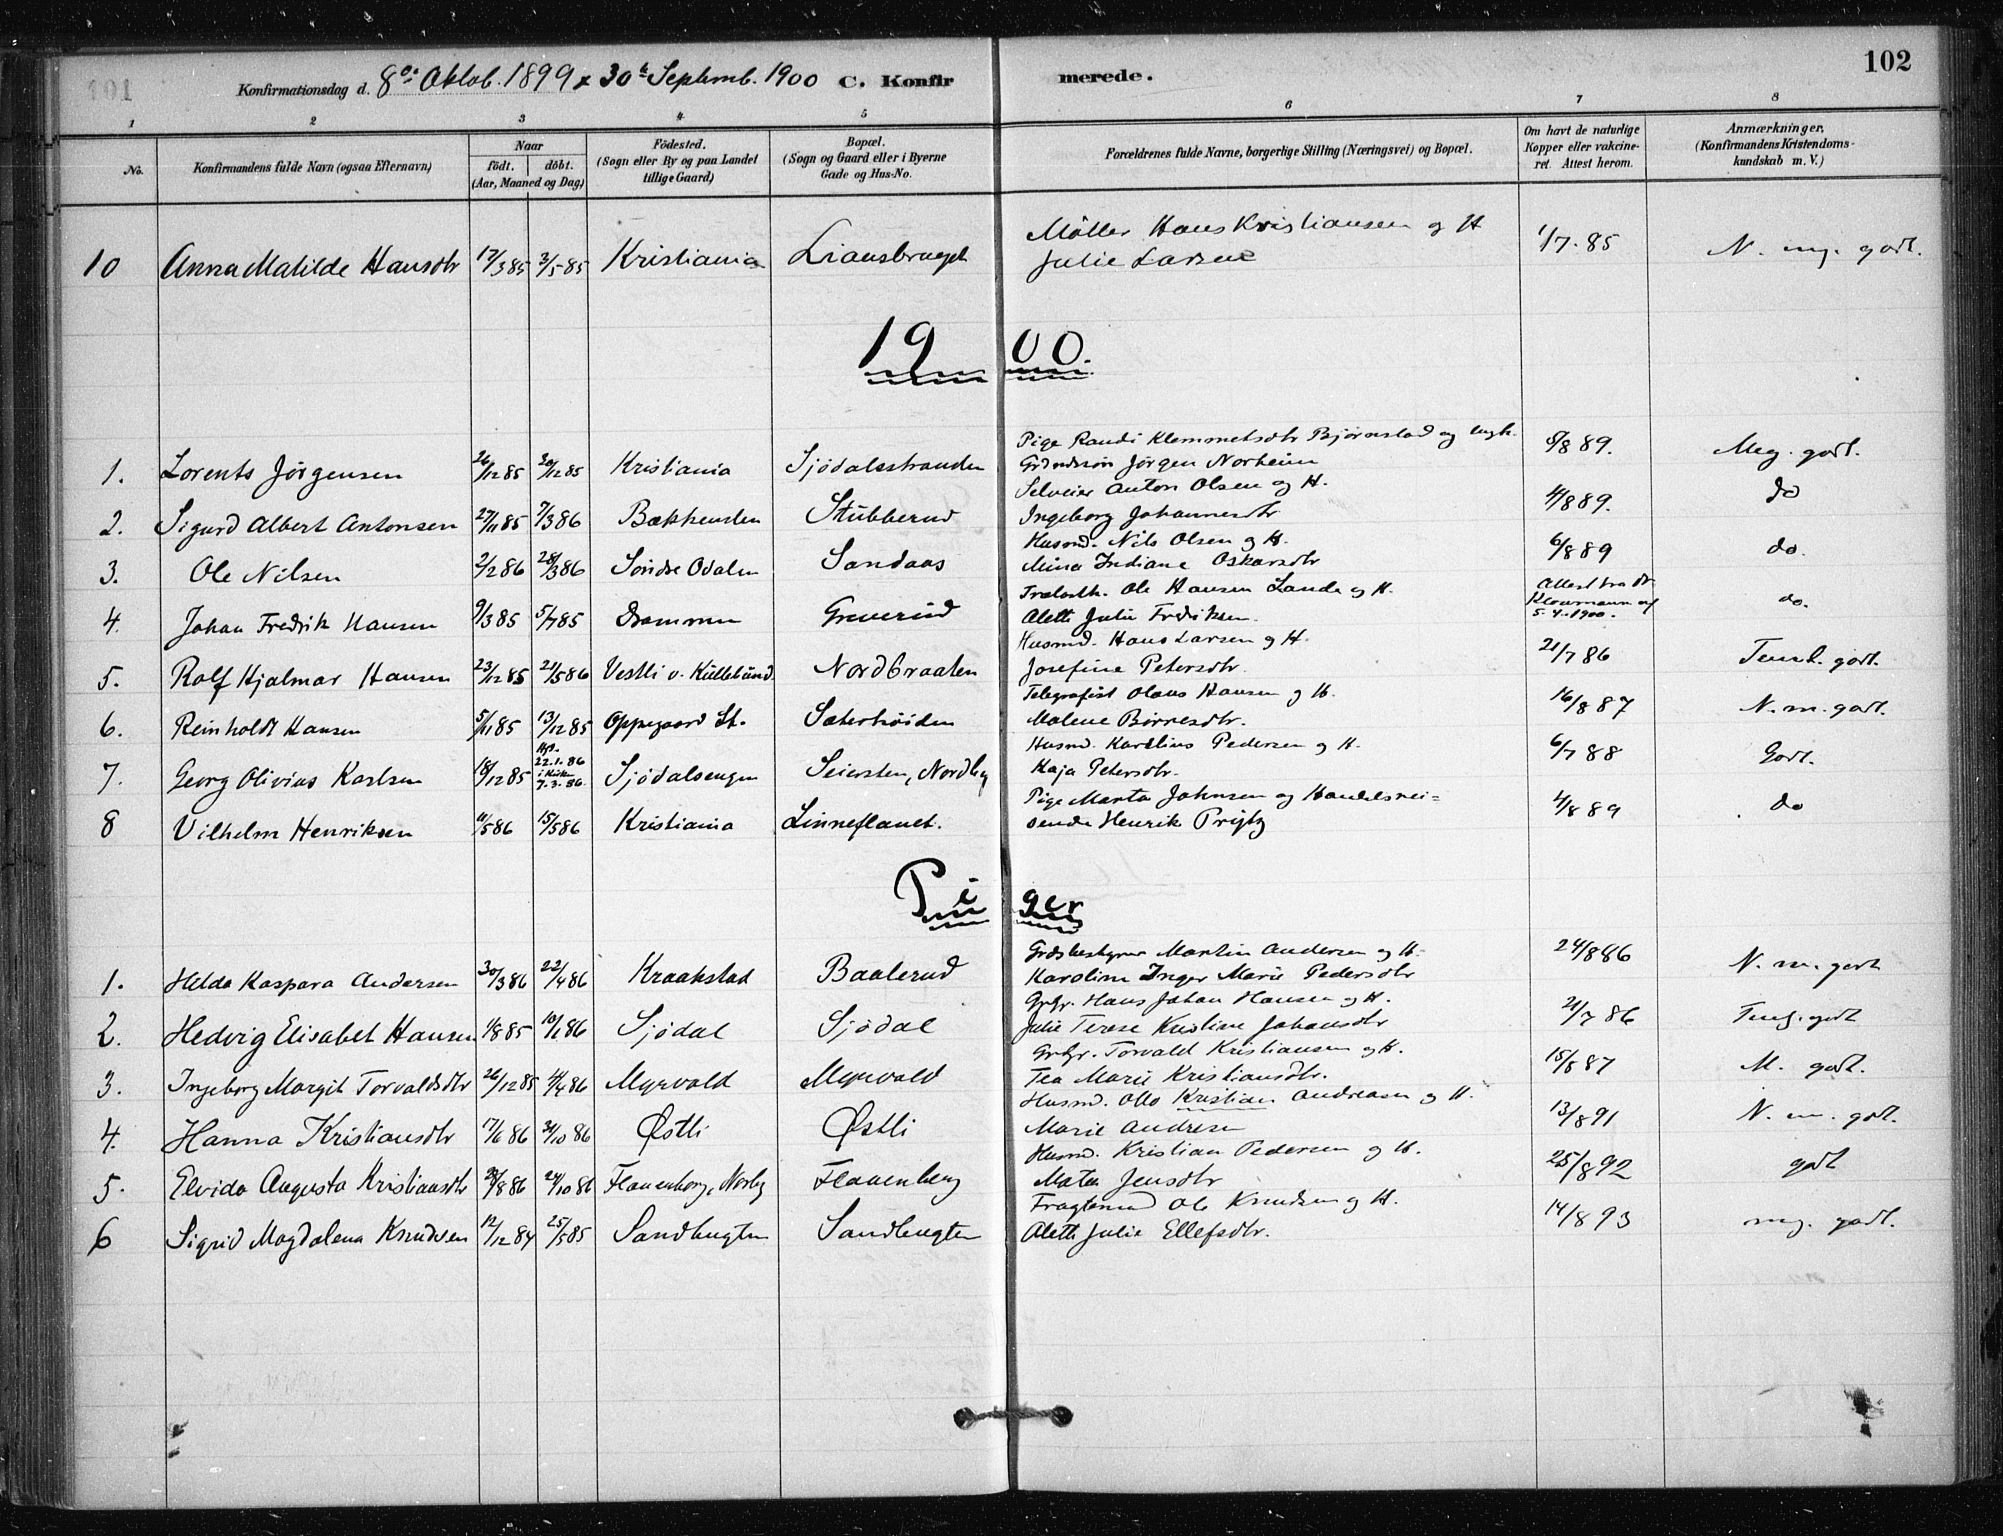 101
102
Konfirmationsdag d. 8de Oktob. 1899 & 30te Septemb. 1900 C. Konfir merede.
1 2 3 4 5 6 7 8
No.
Konfirmandens fulde Navn (ogsaa Efternavn)
Naar
födt. döbt.
(Aar, Maaned og Dag)
Födested.
(Sogn eller By og paa Landet
tillige Gaard)
Bopæl.
(Sogn og Gaard eller i Byerne
Gade og Hus-No.
Forældrenes fulde Navne, borgerlige Stilling (Næringsvei) og Bopæl.
Om havt de naturlige
Kopper eller vakcine-
ret. Attest herom.
Anmærkninger,
(Konfirmandens Kristendoms-
kundskab m. V.)
Möller Hans Kristiansen og H
10 Anna Matilde Hansdtr 17/3 85 3/5 85 Kristiania Liansbruget Julie Larsen 1/7 85 N. mg. godt.
1900.
Pige Randi Klemmetsdtr Bjørnstad og ungk.
1. Lorents Jörgensen 26/12 85 30/12 85 Kristiania Sjödalsstranden Jörgen Norheim 5/8 89. Meg. godt.
Selveier Anton Olsen og H.
2. Sigurd Albert Antonsen 27/11 85 7/3 86 Bækkensten Stubberud Ingeborg Johannesdtr 4/8 89. do
Husmd. Nils Olsen og H.
3. Ole Nilsen 2/2 86 28/3 86 Söndre Odalen Sandaas Mina Indiane Oskarsdtr 6/8 89 do.
Ole Hansen Lande og H.
4. Johan Fredrik Hansen 9/3 85 5/7 85 Drammen Greverud Alette Julie Fredriksen. Attest fra dr. 5-4-1900. do.
Husmd. Hans Larsen og H.
5. Rolf Hjalmar Hansen 23/12 85 21/5 86 Vestli v. Kullebund. Nordbraaten Josefine Petersdtr. 21/7 86 Teml. godt.
Telegrafist Olaus Hansen og H.
6. Reinholdt Hansen 5/11 85 13/12 85 Oppegaard St. Sæterhöiden Malene Börresdtr. 16/8 87 N. m. godt.
Husmd. Karelius Pedersen og H.
7. Georg Olivius Karlsen 18/12 85 22.1.86 i Kirken 7.3.86. Sjödalsengen Seiersten, Nordby Kaja Petersdtr. 6/7 88 Godt.
Pige Marta Johnsen og Handelsrei=
8 Vilhelm Henriksen 11/5 86 15/5 86 Kristiania Linneflaaet. sende Henrik Pryty 4/8 89 do
Piger
Grdsbestyrer Martin Andersen og H.
1. Helda Kaspara Andersen 30/3 86 22/4 86 Kraakstad Baalerud Karoline Inger Marie Pedersdtr 24/8 86 N. m. godt
Grbr. Hans Johan Hansen og H.
2. Hedvig Elisabet Hansen 1/8 85 10/1 86 Sjödal Sjödal Julie Terese Kristine Johansdtr 21/7 86 Teml. godt
Grbr. Torvald Kristiansen og H.
3. Ingeborg Margit Torvaldsdtr 26/12 85 4/4 86 Myrvold Myrvold Tea Marie Kristiansdtr. 15/8 87 M. godt.
Husmd. Otto Kristian Andreasen og H.
4. Hanna Kristiansdtr 17/6 86 31/10 86 Østli Østli Marie Andresen 13/8 91 N. m. godt.
Husmd. Kristian Pedersen og H.
5. Elvida Augusta Kristiansdtr 28/8 86 24/10 86 Flauenborg, Norby Flauenberg Maten Jensdtr 25/8 92 godt
Fragtemd Ole Knudsen og H.
6 Sigrid Magdalena Knudsen 12/12 84 25/5 85 Sandbugten Sandbugten Alette Julie Ellefsdtr. 14/8 93 mg. godt.